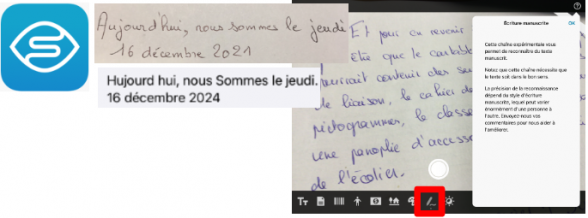 Aujourd'hui, nous sommes le jeudi
16 décembre 2021
Hujourd hui, nous Sommes le jeudi.
16 décembre 2024
Et pour en revenir
être que le cartable
pourrait contenir des
de liaison, le cahier de
pictogrammes, le classe
une panoplie d'access
de l'écolier.
Écriture manuscrite
OK
Cette chaîne expérimentale vous
permet de reconnaître du texte
manuscrit.
Notez que cette chaîne nécessite que
le texte soit dans le bon sens.
La précision de la reconnaissance
dépend du style d'écriture
manuscrite, lequel peut varier
énormément d'une personne à
l'autre. Envoyez-nous vos
commentaires pour nous aider à
l'améliorer.